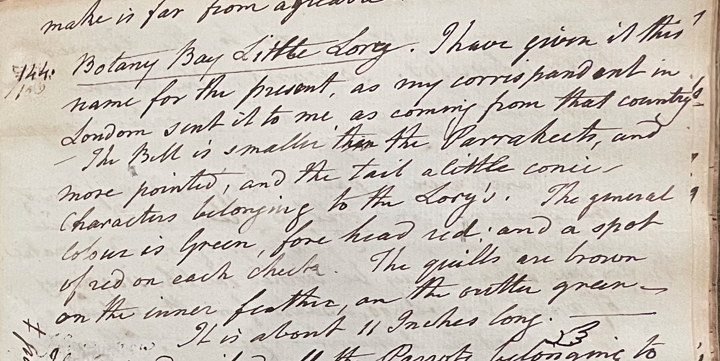 make is far from
144. Botany Bay Little Lory. I have given it this
name for the present, as my correspondent in
London sent it to me, as coming from that country
- The Bill is smaller than the Parrakeets, and
more pointed, and the tail a little conic -
Characters belonging to the Lory's. The general
Colour is Green, fore head red; and a spot
of red on each cheek. The quills are brown
on the inner feather, on the outter green -
It is about 11 Inches long.
Parrots belonging to